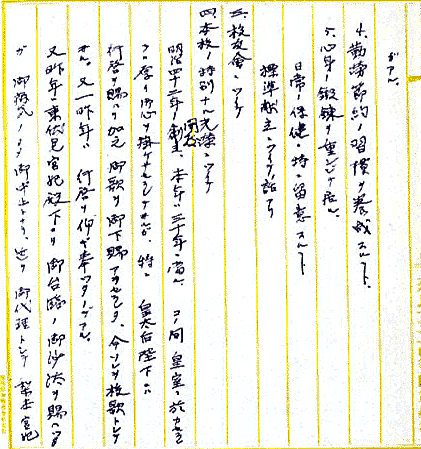 ガアル。
4、勤労節約ノ習慣ヲ養成スルコト、
5、心身ノ鍛錬ヲ重ンジテ居ル、
日常ノ保健ニ特ニ留意スルコト
標準献立ニツイテ話ス
三、校友会ニツイテ
四、本校ノ特別ナル光栄ニツイテ
明治四十二年ノ創立、本年ハ三十年ニ当ル コノ間 皇室ニ於カセラレ
御心ヲ掛ケサセラレ 特ニ 皇太后陛下ニハ
行啓ヲ賜ハリ 加之 御歌ヲ御下賜アラセラレタ、今ソレヲ校歌トシテ
又一昨年ハ 行啓ヲ仰ギ奉ツタノデアル。
又昨年ハ東伏見宮妃殿下ヨリ御台臨ノ御沙汰ヲ賜ハツタ
ガ 御取止トナリ 御代理トシテ 梨本宮妃